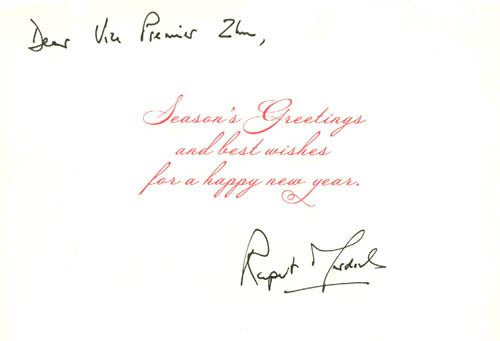 Dear Vice Premier Zhu,
Season's Greetings
and best wishes
for a happy new year.
Rupert Murdoch